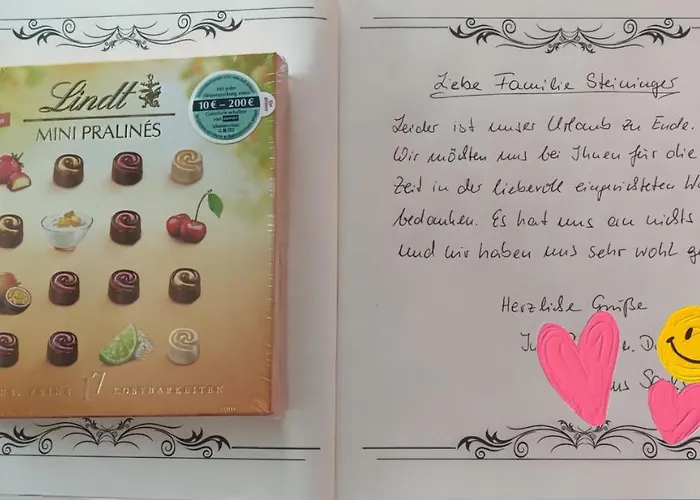 Lindt
MINI PRALINÉS
10 € – 200 €
KOSTBARKEITEN
Liebe Familie Steininger
Leider ist unser Urlaub zu Ende.
Wir möchten uns bei Ihnen für die
Zeit in der liebevoll eingerichteten
bedanken. Es hat uns an nichts
und wir haben uns sehr wohl
Herzliche Grüße